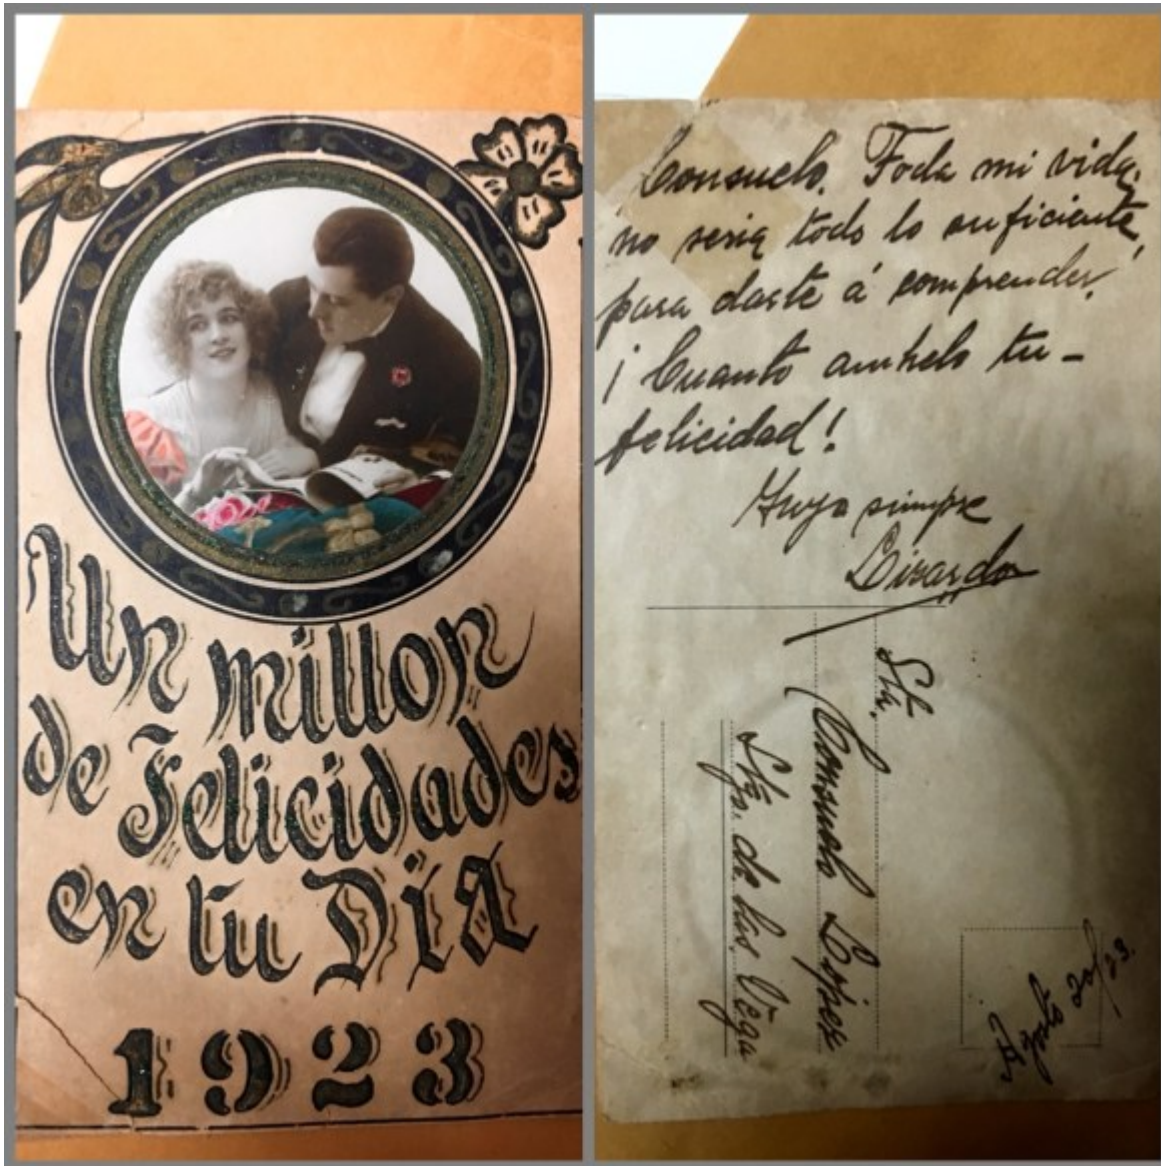 Un millon
de Felicidades
en tu DíA
1923
Consuelo. Toda mi vida,
no seria todo lo suficiente,
para darte á comprender,
¡ Cuanto anhelo tu -
felicidad!
Tuyo siempre
Srta.
Consuelo Lopez
Stgo. de las Vegas
Agosto 20/23.